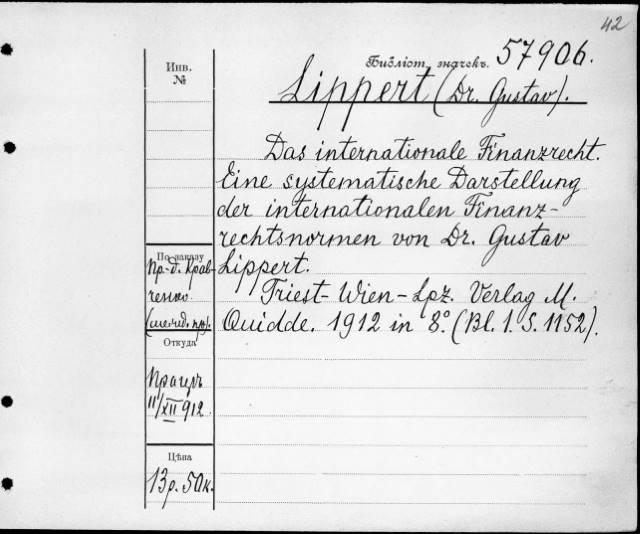 42
Инв.
№
Библіот. значекъ. 57906.
Lippert (Dr. Gustav).
Das internationale Finanzrecht.
Eine systematische Darstellung
der internationalen Finanz-
rechtsnormen von Dr. Gustav
Lippert.
Triest-Wien-Lpz. Verlag M.
Quidde. 1912 in 8º. (Bl. 1. S. 1152).
По заказу
Пр-д. Крав-
ченко
Откуда
Прагеръ
11/XII 912.
Цѣна
13р. 50к.